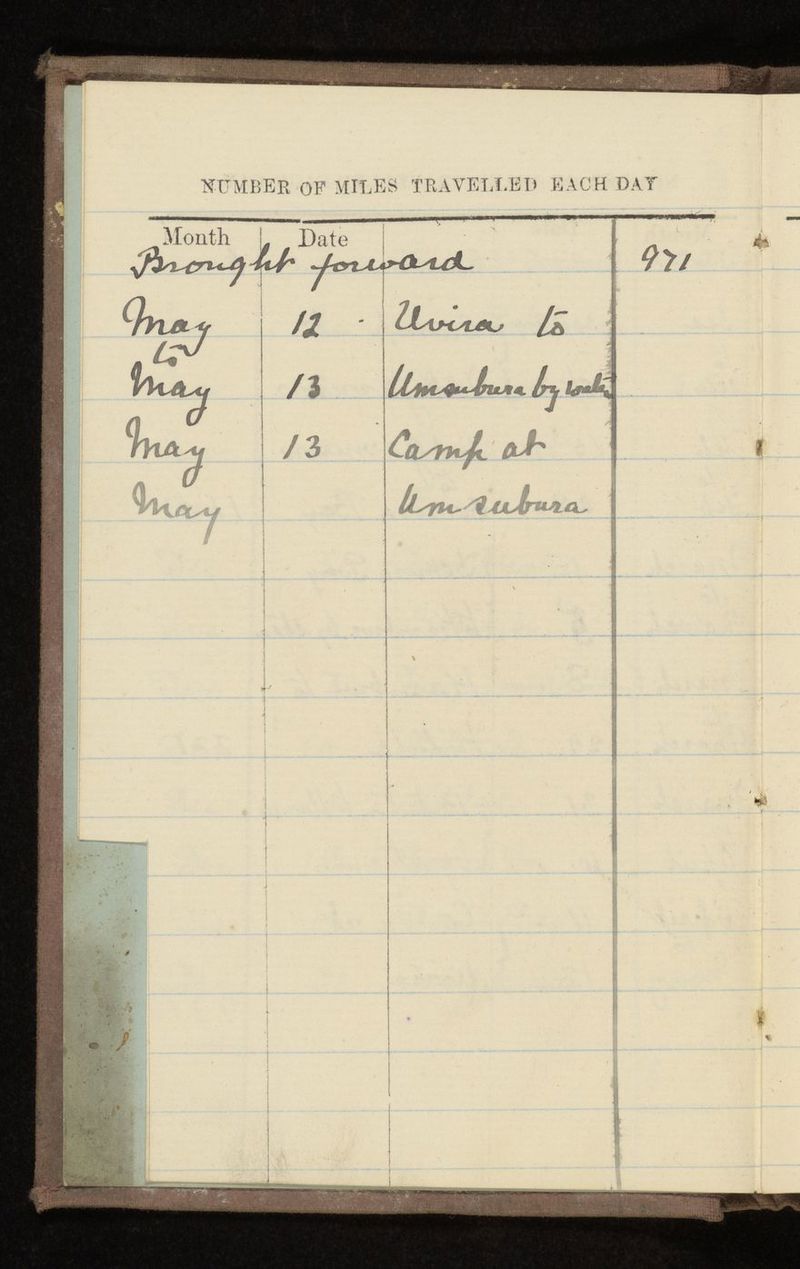 NUMBER OF MILES TRAVELLED EACH DAY
Month Date
Brought forward 971
May 12 - Uvira to
to
May 13 Umsubura by water
May 13 Camp at
May Umsubura